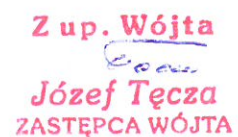 Z up. Wójta
Józef Tęcza
ZASTĘPCA WÓJTA